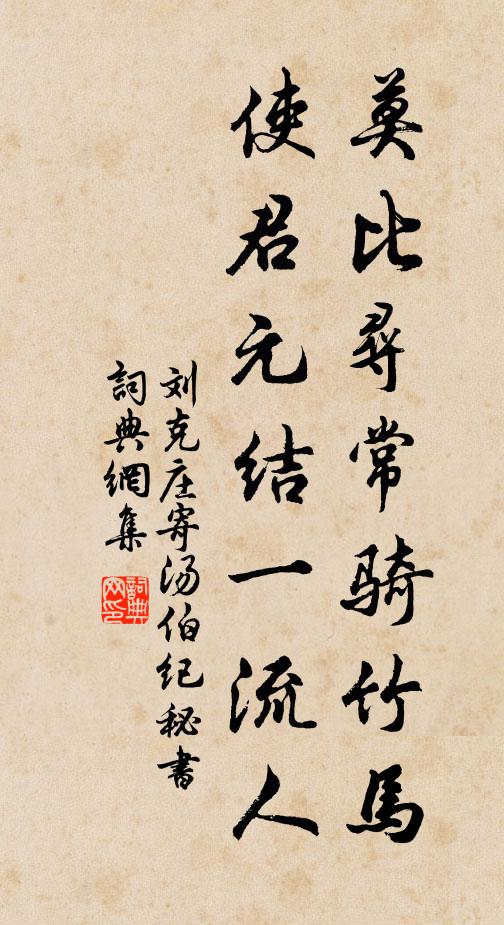 莫比尋常騎竹馬
使君元結一流人
刘克庄寄汤伯纪秘書
詞典網集
詞典网印